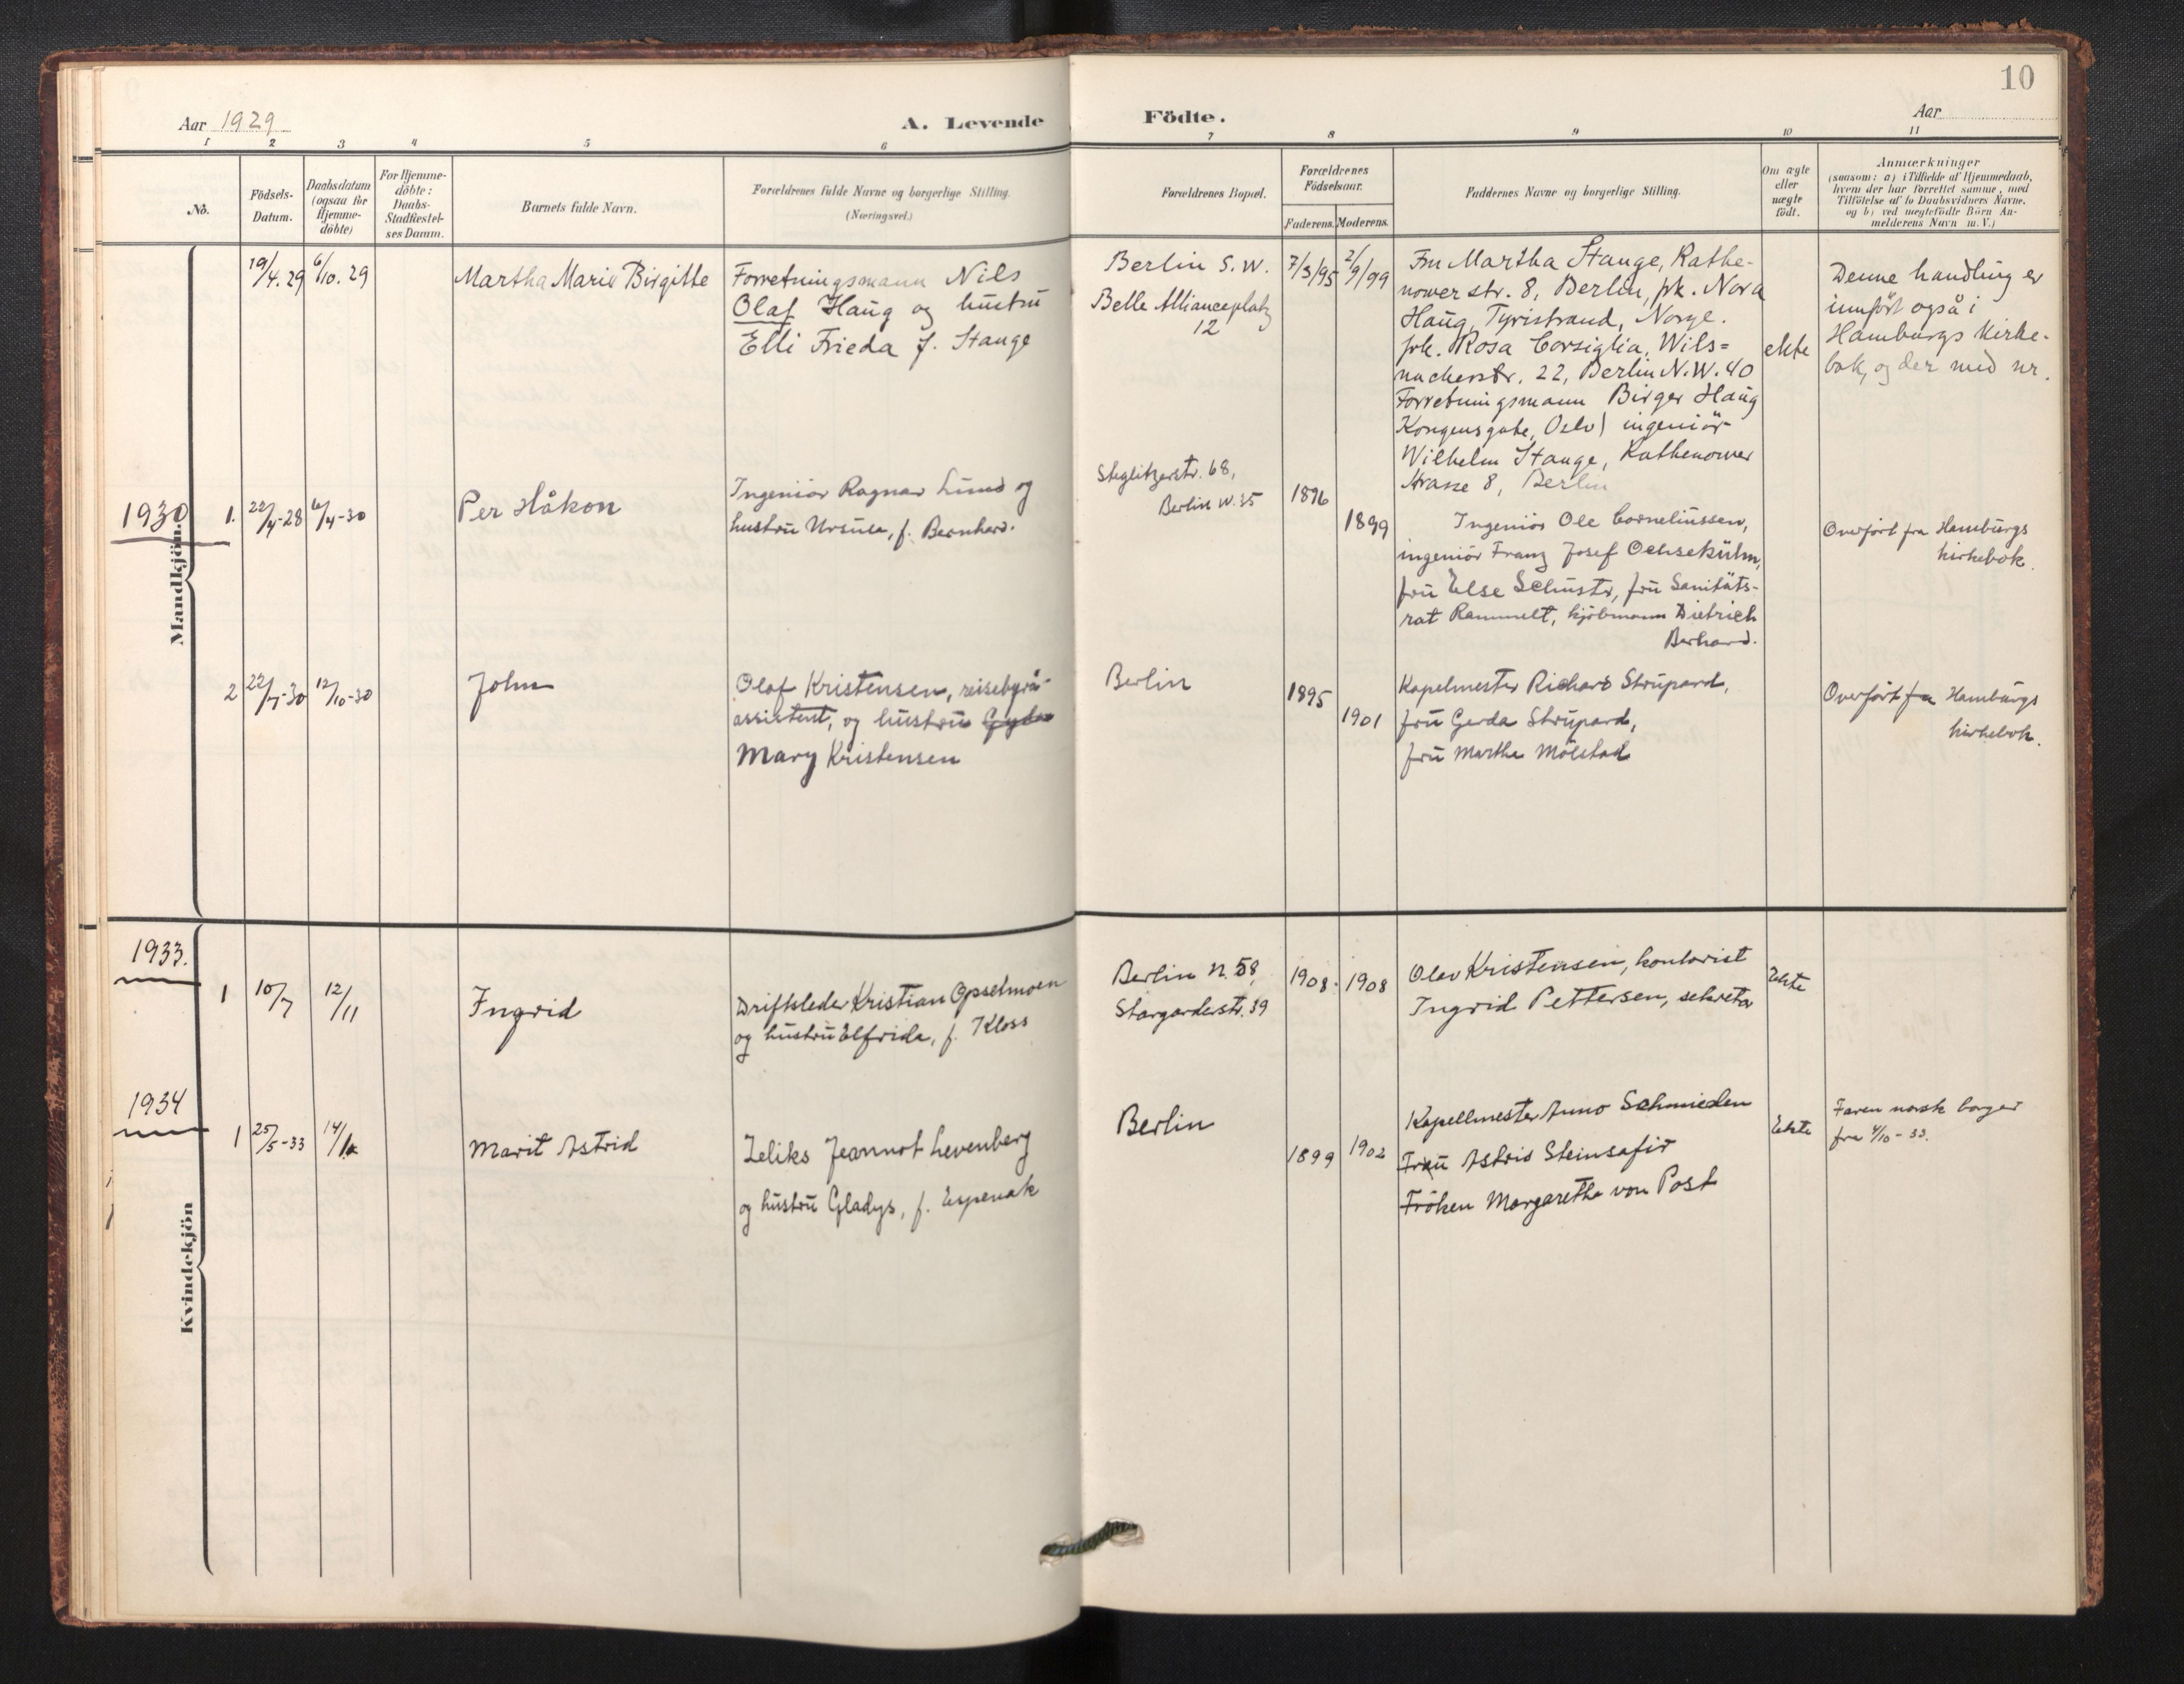 10
Aar 1929
A. Levende Födte.
Aar
1 2 3 4 5 6 7 8 9 10 11
No.
Födsels-
Datum.
Daabsdatum
(ogsaa for
Hjemme-
döbte)
For Hjemme-
döbte:
Daabs-
Stadfæstel-
ses Datum.
Barnets fulde Navn.
Forældrenes fulde Navne og borgerlige Stilling.
(Næringsvei.)
Forældrenes Bopæl.
Forældrenes
Födselsaar.
Faderens. Moderens.
Faddernes Navne og borgerlige Stilling.
Om ægte
eller
uægte
födt.
Anmærkninger
(saasom: a) i Tilfælde af Hjemmedaab,
hvem der har forrettet samme, med
Tilföielse af to Daabsvidners Navne,
og b) ved uægtefödte Börn An-
melderens Navn m. V.)
Mandkjön.
19/4.29 6/10.29
Martha Marie Birgitte
Forretningsmann Nils
Olaf Haug og hustru
Elli Frieda f. Stange
Berlin S.W.
Belle Allianceplatz
12
7/3/95 2/9/99
Fru Martha Stange, Rathe-
nower str. 8, Berlin, frk. Nora
Haug, Tyristrand, Norge.
frk. Rosa Corsiglia, Wils=
nackerstr. 22, Berlin N.W. 40
Forretningsmann Birger Haug
Kongensgate, Oslo) ingeniör
Wilhelm Stange, Rathenower
Strasse 8, Berlin
ekte
Denne handling er
innfört også i
Hamburgs Kirke-
bok, og der med nr.
1930
1. 22/4-28 6/4-30
Per Håkon
Ingeniör Ragnar Lund og
hustru Ursula, f. Bernhard.
Steglitzerstr. 68,
Berlin W. 35
1896
1899
Ingeniör Ole Corneliussen,
ingeniör Franz Josef Ochsekühn,
fru Else Schuster, fru Sanitäts-
rat Rammelt, kjöbmann Dietrich
Berhard.
Overfört fra Hamburgs
kirkebok.
2 22/7-30 12/10-30
John
Olaf Kristensen, reisebyrå-
assistent, og hustru Gyda
Mary Kristensen
Berlin
1895
1901
Kapelmester Richard Strupard,
fru Gerda Strupard,
fru Martha Mölstad
Overfört fra Hamburgs
kirkebok.
Kvindekjön
1933.
1 10/7 12/11
Ingrid
Driftsleder Kristian Opselmoen
og hustru Elfrida, f. Kloss
Berlin N. 58,
Stargarderstr. 39
1908. 1908
Olav Kristensen, kontorist
Ingrid Pettersen, sekretær
Ekte
1934
1 25/5-33 14/1
Marit Astrid
Zeliks Jeannot Levenberg
og hustru Gladys, f. Espenak
Berlin
1899 1902
Kapellmester Anno Schmieden
Frau Astrid Steinsafir
Fröken Margaretha von Post
Ekte
Faren norsk borger
fra 4/10-33.